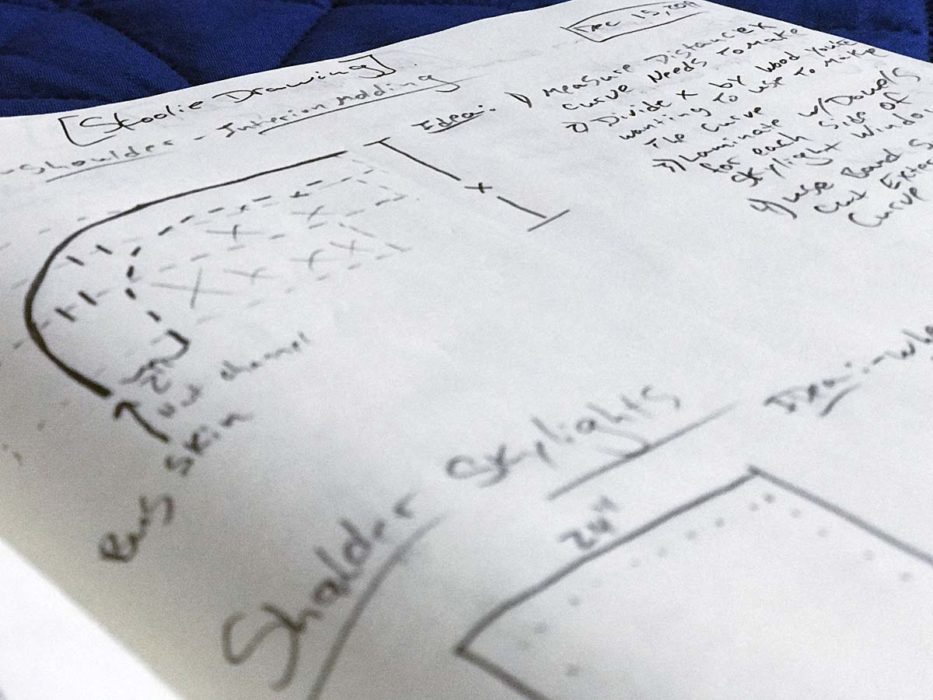 [Skoolie Drawing]
Dec 15, 2017
- Shoulder - Interior Molding
Idea: 1) Measure Distance X
Curve Needs To Make
2) Divide X by wood you're
wanting to use To Make
The Curve
3) Laminate w/ Dowels
for each side of
Skylight Window
4) use Band S
Cut Exter
Curve
x
2"
nut channel
Bus Skin
Sholder Skylights
Idea: -
24"